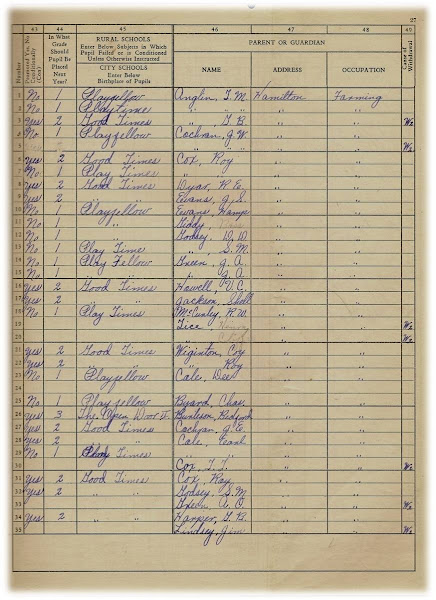 27
43 44 45 46 47 48 49
Number
In What Grade Should Pupil Be Placed Next Year?
RURAL SCHOOLS
Enter Below Subjects in Which Pupil Failed or is Conditioned Unless Otherwise Instructed
CITY SCHOOLS
Enter Below Birthplace of Pupils
PARENT OR GUARDIAN
NAME ADDRESS OCCUPATION
Cause of Withdrawal
1 No 1 Playfellow Anglin, T. M. Hamilton Farming
2 No 1 Play Times " " " "
3 Yes 2 Good Times " G. B. " " We
4 No 1 Playfellow Cochran, J. W. " "
5 " " " " We
6 Yes 2 Good Times Cox, Roy " "
7 No 1 Play Times " " " "
8 Yes 2 Good Times Dyar, R. E. " "
9 Yes 2 " " Evans, J. S. " "
10 No 1 Playfellow Evans, " "
11 No 1 " Giddy " "
12 No 1 " Godsey, D. D. " "
13 No 1 Play Time " S. M. " "
14 No 1 Play Fellow Green, J. A. " "
15 No 1 " " J. A. " "
16 Yes 2 Good Times Howell, V. C. " "
17 Yes 2 " Jackson, " "
18 No 1 Play Times McCurley, R. W. " "
19 Tice " " We
20 " " We
21 Yes 2 Good Times Wiginton, Coy " "
22 Yes 2 " " Roy " "
23 No 1 Playfellow Cale, Dee " "
24
25 No 1 Playfellow Byard, Chas. " "
26 Yes 3 The Open Door Burleson, " "
27 Yes 2 Good Times Cochran, J. E. " "
28 Yes 2 " " Cale, Earl " "
29 No 1 Play Times " " " "
30 Cox, T. T. " " We
31 Yes 2 Good Times Cox, Roy " "
32 Yes 2 " " Godsey, S. M. " "
33 Green, A. O. " " We
34 Yes 2 " " Harper, T. B. " "
35 Lindsey, Jim " " We